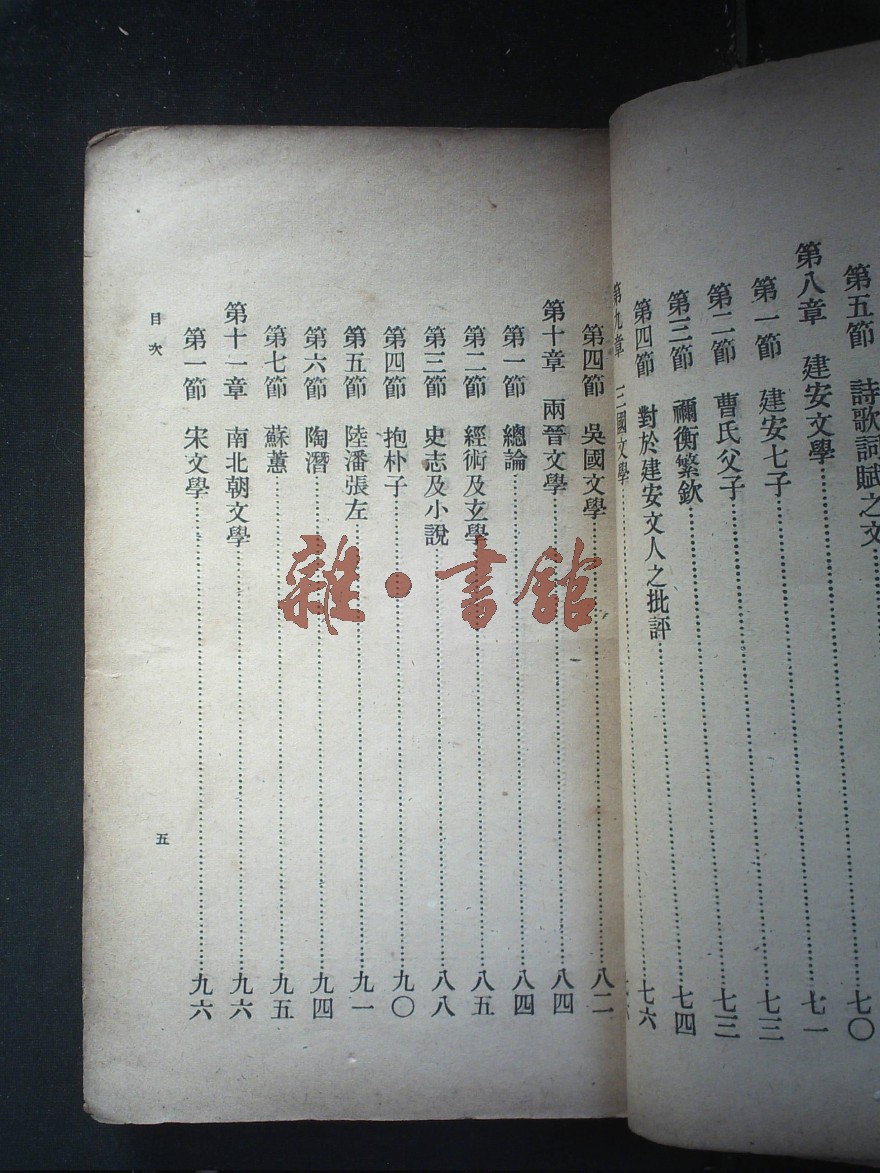 第五節　詩歌詞賦之文……七〇
第八章　建安文學……七一
第一節　建安七子……七三
第二節　曹氏父子……七三
第三節　禰衡繁欽……七四
第四節　對於建安文人之批評……七六
第九章　三國文學……
第四節　吳國文學……八二
第十章　兩晉文學……八四
第一節　總論……八四
第二節　經術及玄學……八五
第三節　史志及小說……八八
第四節　抱朴子……九〇
第五節　陸潘張左……九一
第六節　陶潛……九四
第七節　蘇蕙……九五
第十一章　南北朝文學……九六
第一節　宋文學……九六
目次
五
雜·書館